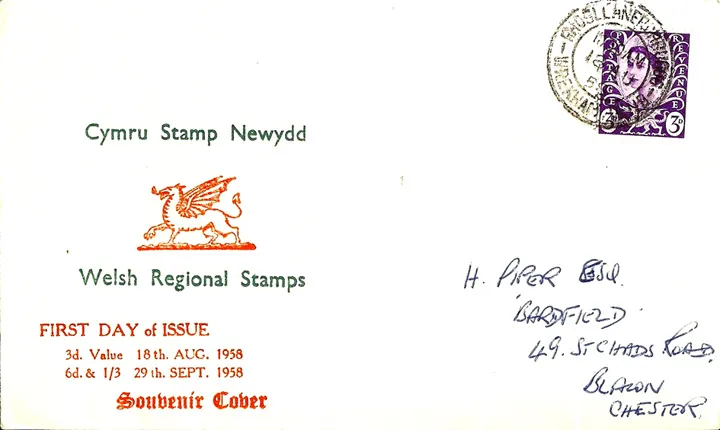 RHOSLLANERCHRUGOG
WREXHAM
18 AU
58
POSTAGE
REVENUE
3D
3D
Cymru Stamp Newydd
Welsh Regional Stamps
FIRST DAY of ISSUE
3d. Value 18th. AUG. 1958
6d. & 1/3 29th. SEPT. 1958
Souvenir Cover
H. PIPER ESQ.
'BARDFIELD'
49. ST CHADS ROAD.
BLACON
CHESTER.